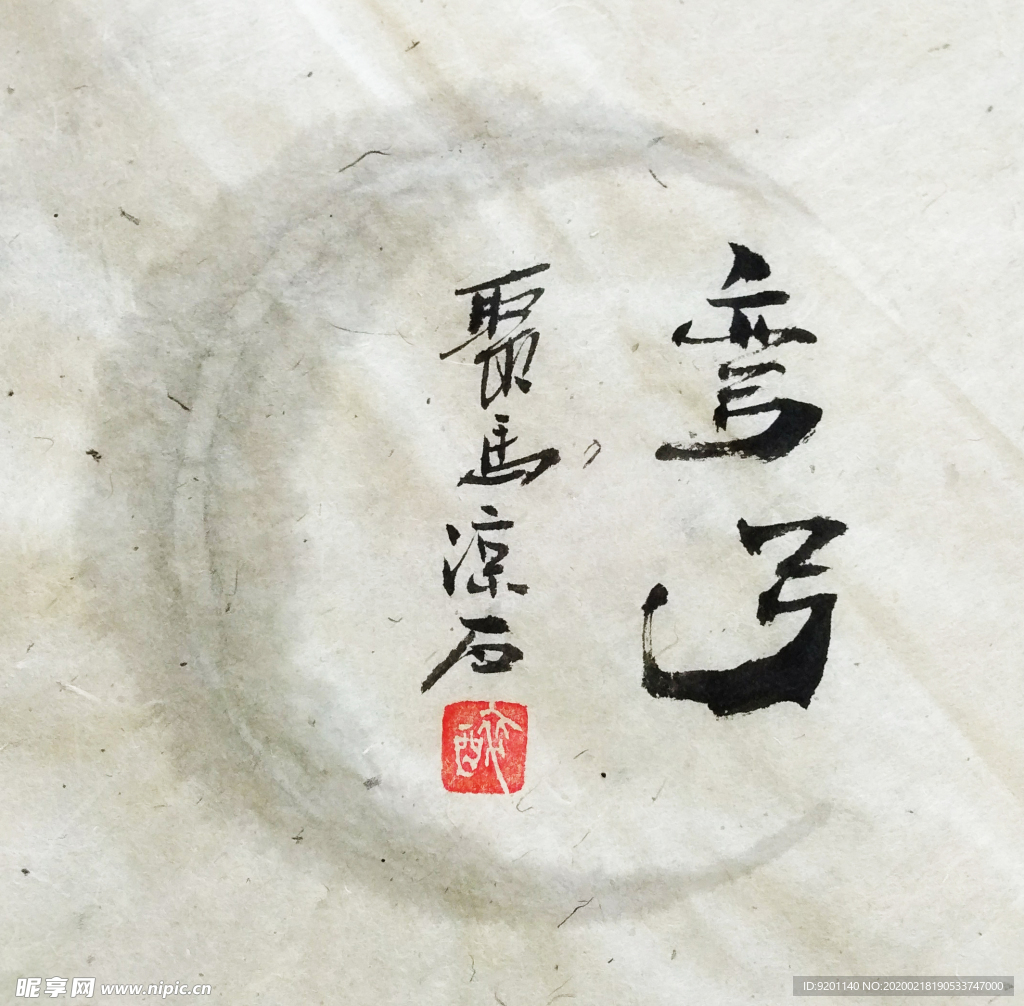 弯弓
馬涼石
醉
昵享网 www.nipic.cn
ID:9201140 NO:20200218190533747000